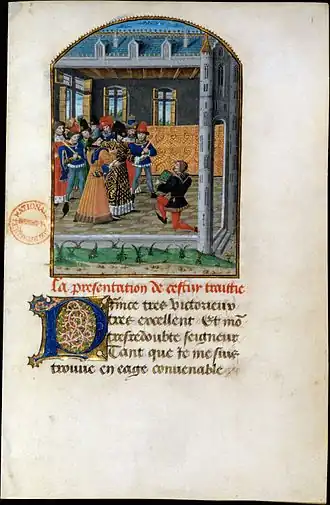 La presentation de cestuy traittie
Prince tres victorieux
tres excellent Et mõ
tresredoubte seigneur
Tant que je me suis
trouue en eage conuenable
NATIONAL